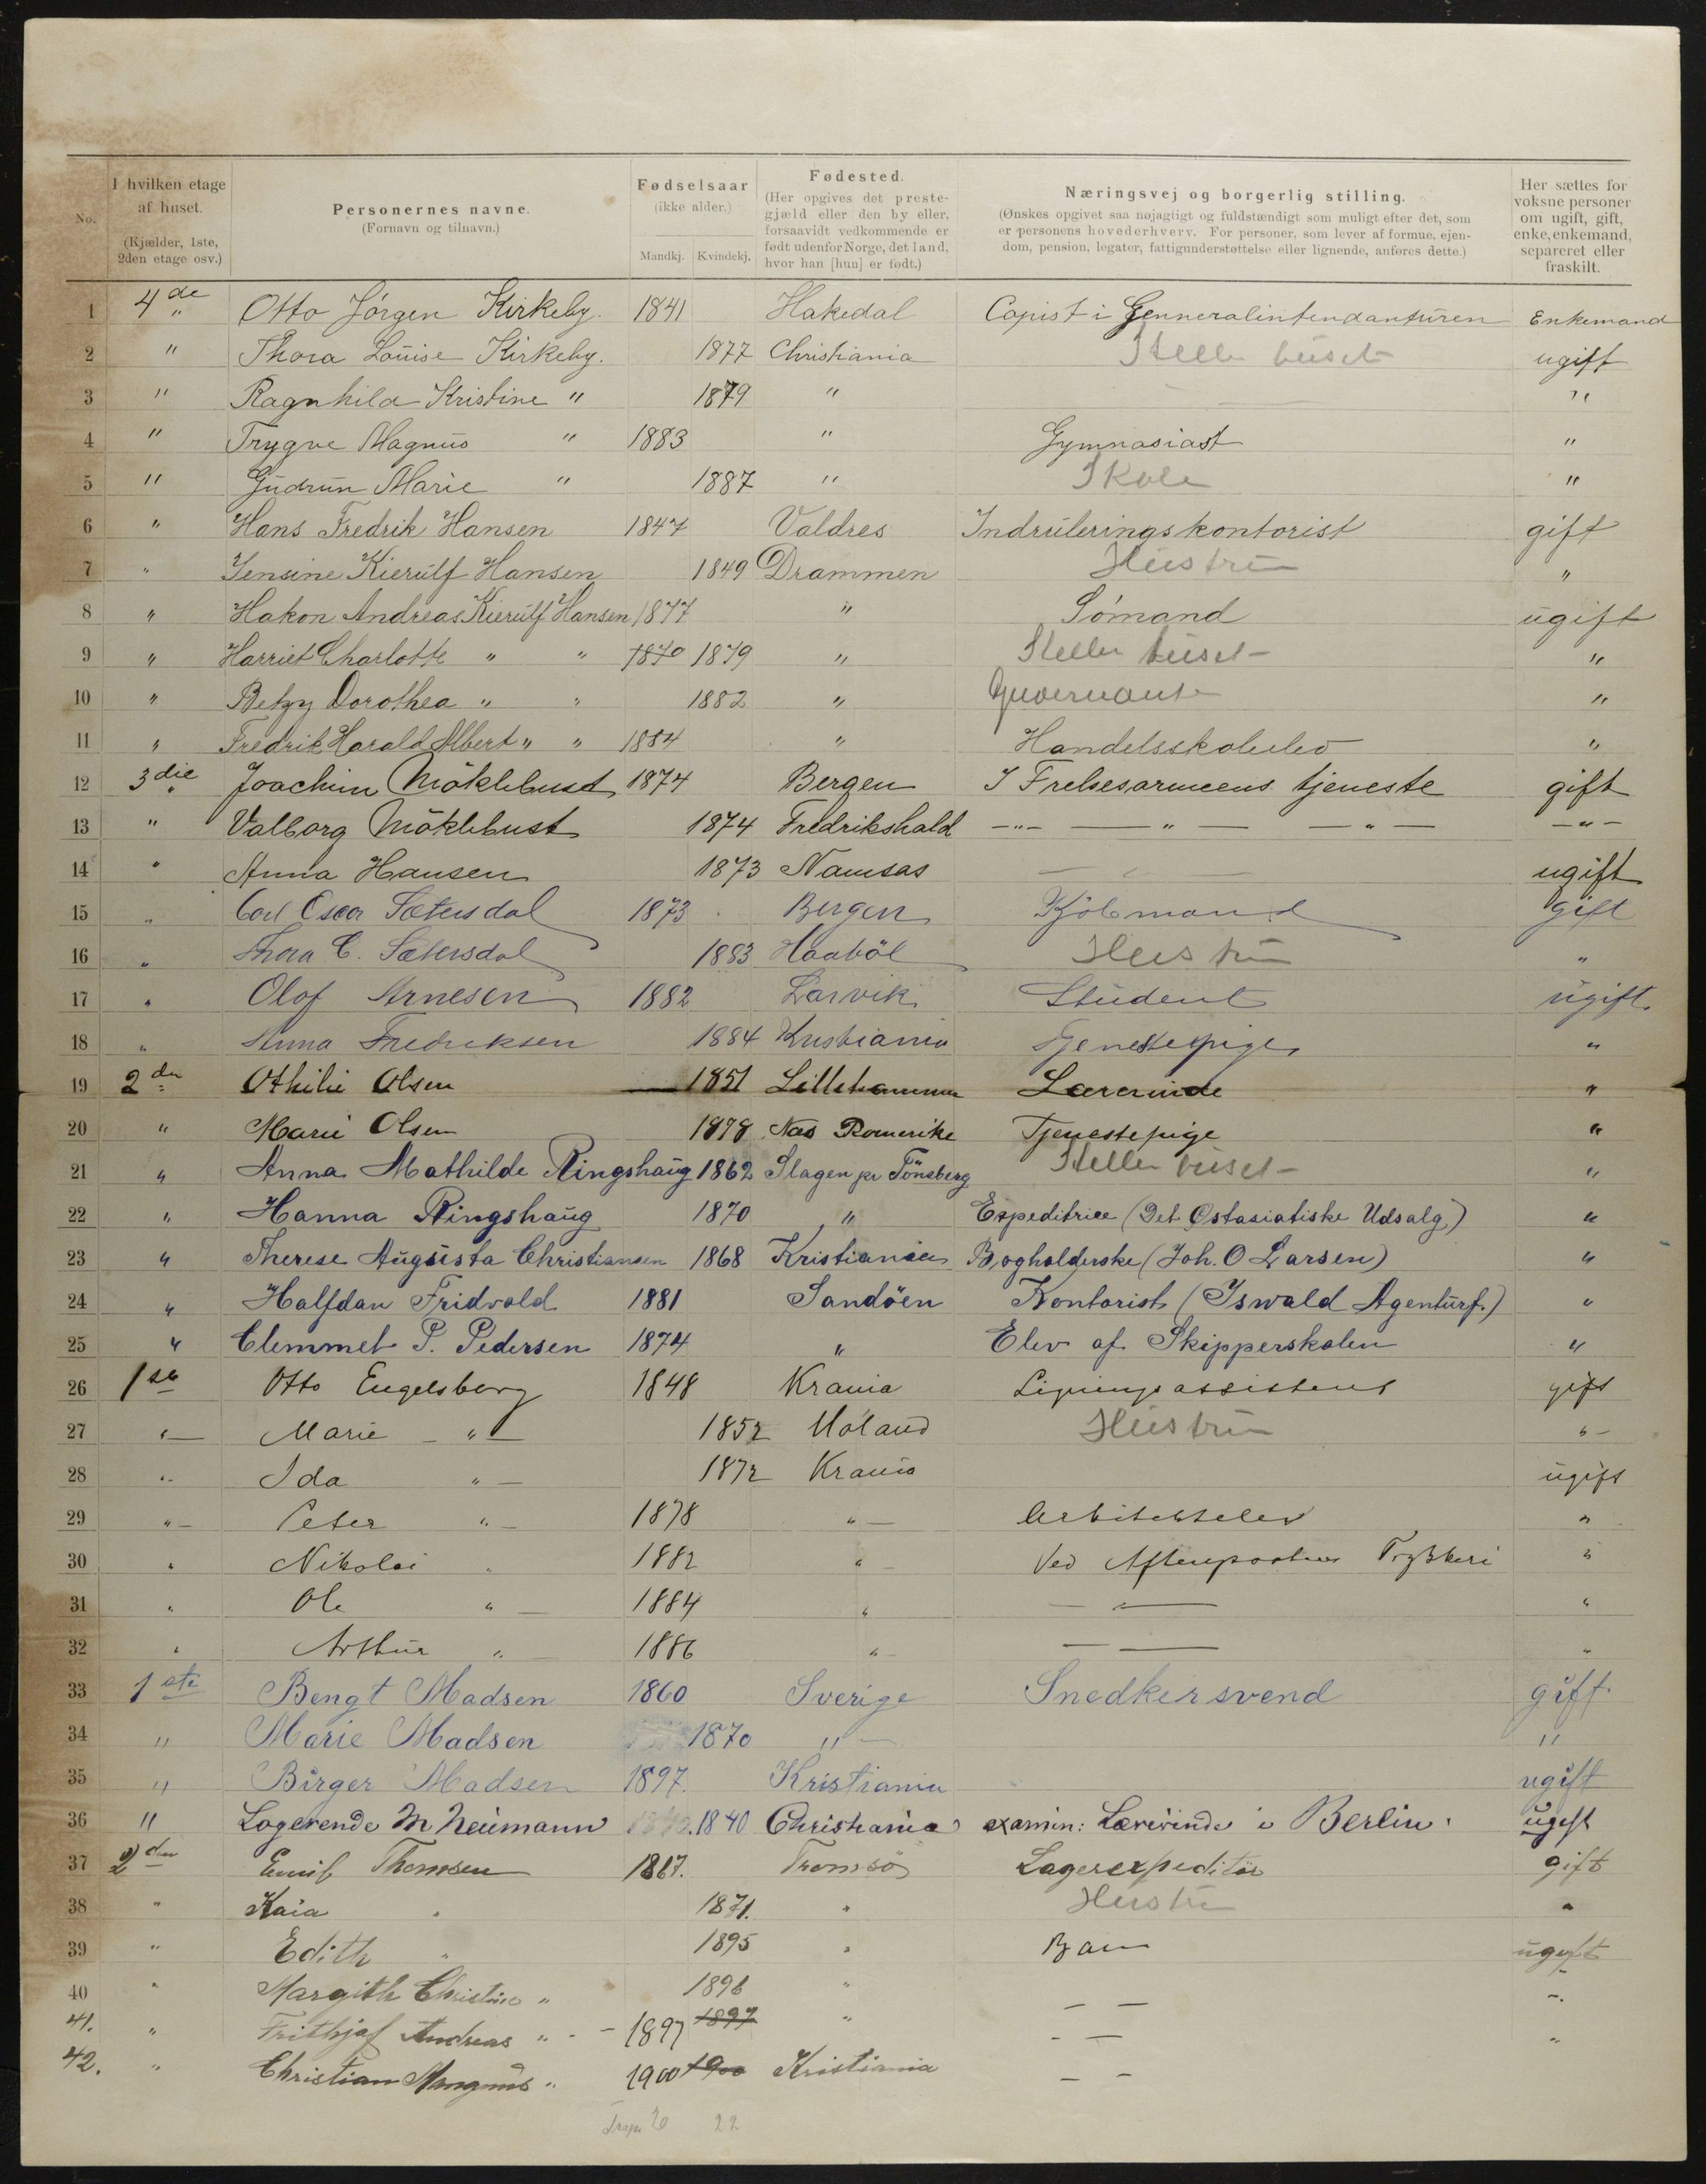 No. I hvilken etage af huset. (Kjælder, 1ste, 2den etage osv.) Personernes navne. (Fornavn og tilnavn.) Fødselsaar (ikke alder.) Mandkj. Kvindekj. Fødested. (Her opgives det prestegjæld eller den by eller, forsaavidt vedkommende er født udenfor Norge, det land, hvor han [hun] er født.) Næringsvej og borgerlig stilling. (Ønskes opgivet saa nøjagtigt og fuldstændigt som muligt efter det, som er personens hovederhverv. For personer, som lever af formue, ejendom, pension, legater, fattigunderstøttelse eller lignende, anføres dette.) Her sættes for voksne personer om ugift, gift, enke, enkemand, separeret eller fraskilt.
1 4de " Otto Jórgen Kirkeby. 1841 Hakedal Copist i Genneralintendantúren Enkemand
2 " Thora Loúise Kirkeby. 1877 Christiania Steller húset ugift
3 " Ragnhild Kristine " 1879 " — "
4 " Trygve Magnús " 1883 " Gymnasiast "
5 " Gúdrún Marie " 1887 " Skole "
6 " Hans Fredrik Hansen 1847 Valdres Indrúleringskontorist gift
7 " Jensine Kierúlf Hansen 1849 Drammen Hústrú "
8 " Hakon Andreas Kierúlf Hansen 1877 " Sómand ugift
9 " Harriet Charlotte " " 1870 1879 " Steller húset "
10 " Betzy Dorothea " " 1882 " Guvernante "
11 " Fredrik Harald Albert " " 1884 " Handelsskoleelev "
12 3die " Joachim Möklebust 1874 Bergen I Frelsesarmeens tjeneste gift
13 " Valborg Möklebust 1874 Fredrikshald —"— — " — — " — —"—
14 " Anna Hansen 1873 Namsos — — — ugift
15 " Carl Oscar Sætersdal 1873 Bergen Kjöbmand gift
16 " Thora C. Sætersdal 1883 Haaböl Hústrú "
17 " Olaf Arnesen 1882 Larvik Stúdent ugift.
18 " Anna Fredriksen 1884 Kristiania Tjenestepige "
19 2den Othilie Olsen 1851 Lillehammer Lærerinde "
20 " Marie Olsen 1878 Næs Romerike Tjenestepige "
21 " Anna Mathilde Ringshaúg 1862 Slagen pr Tönsberg Steller húset "
22 " Hanna Ringshaúg 1870 " Expeditrice (Det Østasiatiske Udsalg) "
23 " Therese Aúgústa Christiansen 1868 Kristiania Bogholderske (Joh. O Larsen) "
24 " Halfdan Fridvold 1881 Sandöen Kontorist (Iswald Agentúrf.) "
25 " Clemmet P. Pedersen 1874 " Elev af Skipperskolen "
26 1ste Otto Engelsberg 1848 Krania Ligningsassistent gift
27 " — Marie — " — 1852 Höland Hústrú " —
28 " Ida " — 1872 Krania ugift
29 " — Peter " — 1878 " — Arkitektelev "
30 " Nikolai " 1882 " — Ved Aftenpostens Trykkeri "
31 " Ole " — 1884 " — — "
32 " Arthúr " — 1886 " — — — "
33 1ste Bengt Madsen 1860 Sverige Snedkersvend gift.
34 " Marie Madsen 1870 " — "
35 " Birger Madsen 1897. Kristiania ugift
36 " Logerende M Neúmann 1840 Christiania examin: Lærerinde i Berlin. ugift
37 2den Emil Thomsen 1867. Tromsö Lagerexpeditör gift
38 " Kaia " 1871. " Hústrú "
39 " Edith " 1895 " Barn ugift
40 " Margith Christine " 1896 " — — "
41. " Frithjof Andreas " — 1897 1897 " — — "
42. " Christian Magnús " 1900 1900 Kristiania — —
22